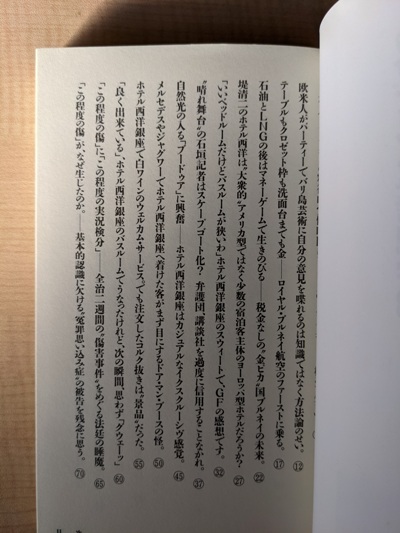 欧米人がパーティーでバリ島芸術に自分の意見を喋れるのは知識ではなく方法論のせい。⑫
テーブルもクロゼット枠も洗面台までも金——ロイヤル・ブルネイ航空のファーストに乗る。⑰
石油とLNGの後はマネーゲームで生きのびる 税金なしの〝金ピカ〟国ブルネイの未来。㉒
堤清二のホテル西洋は〝大衆的〟アメリカ型ではなく少数の宿泊客主体のヨーロッパ型ホテルだろうか?㉗
「いいベッドルームだけどバスルームが狭いわ」ホテル西洋銀座のスウィートで、GFの感想です。㉜
〝晴れ舞台〟の石垣記者はスケープゴート化? 弁護団、講談社を過度に信用することなかれ。㊲
自然光の入る、「ブードゥア」に興奮——ホテル西洋銀座はカジュアルなイクスクルーシヴ感覚。㊺
メルセデスやジャグワーでホテル西洋銀座へ着けた客がまず目にするドア・マン・ブースの怪。㊿
ホテル西洋銀座で白ワインのウェルカム・サービス。でも注文したコルク抜きは〝景品〟だった。55
「良く出来ている」、ホテル西洋銀座のバスルームでうなったけれど、次の瞬間、思わず、「ダウェーッ」60
「この程度の傷」に「この程度の実況検分」——全治二週間の〝傷害事件〟をめぐる法廷の睡魔。65
「この程度の傷」が、なぜ生じたのか。——基本的認識に欠ける、〝冤罪思い込み症〟の被告を残念に思う。70